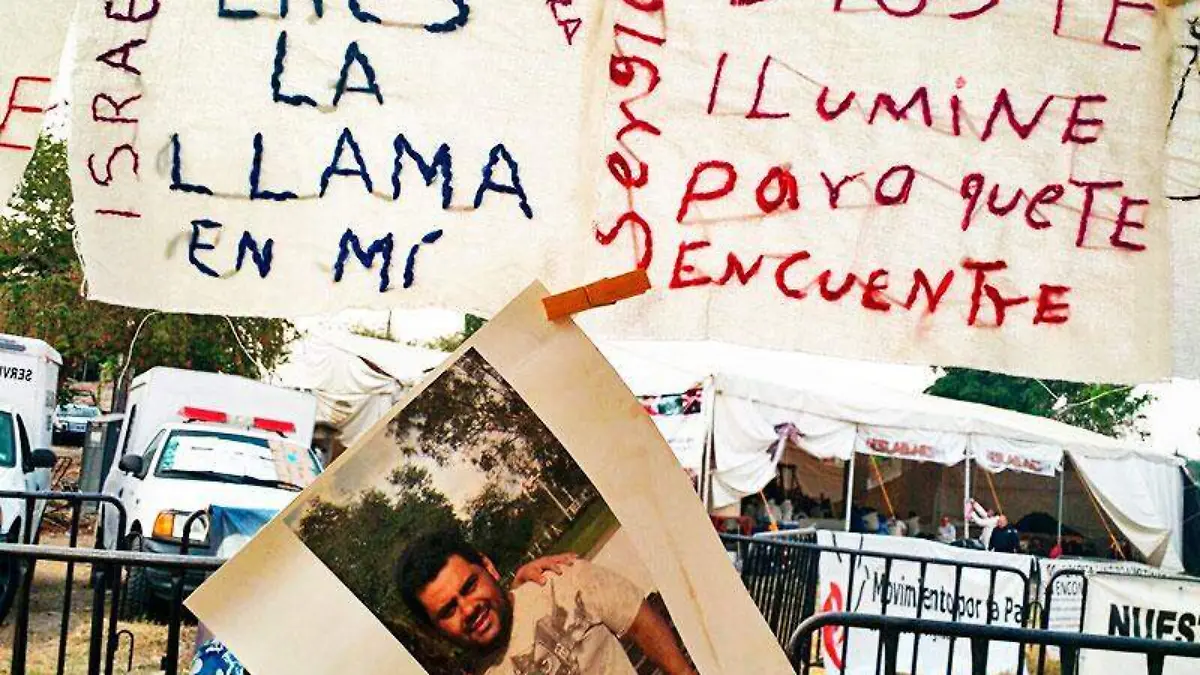 ISRAE
ERES
LA
LLAMA
EN MÍ
Sergio
DIOS TE
ILUMINE
para que TE
ENCUENTRE
SERVI
Movimiento por la Pa
NUES